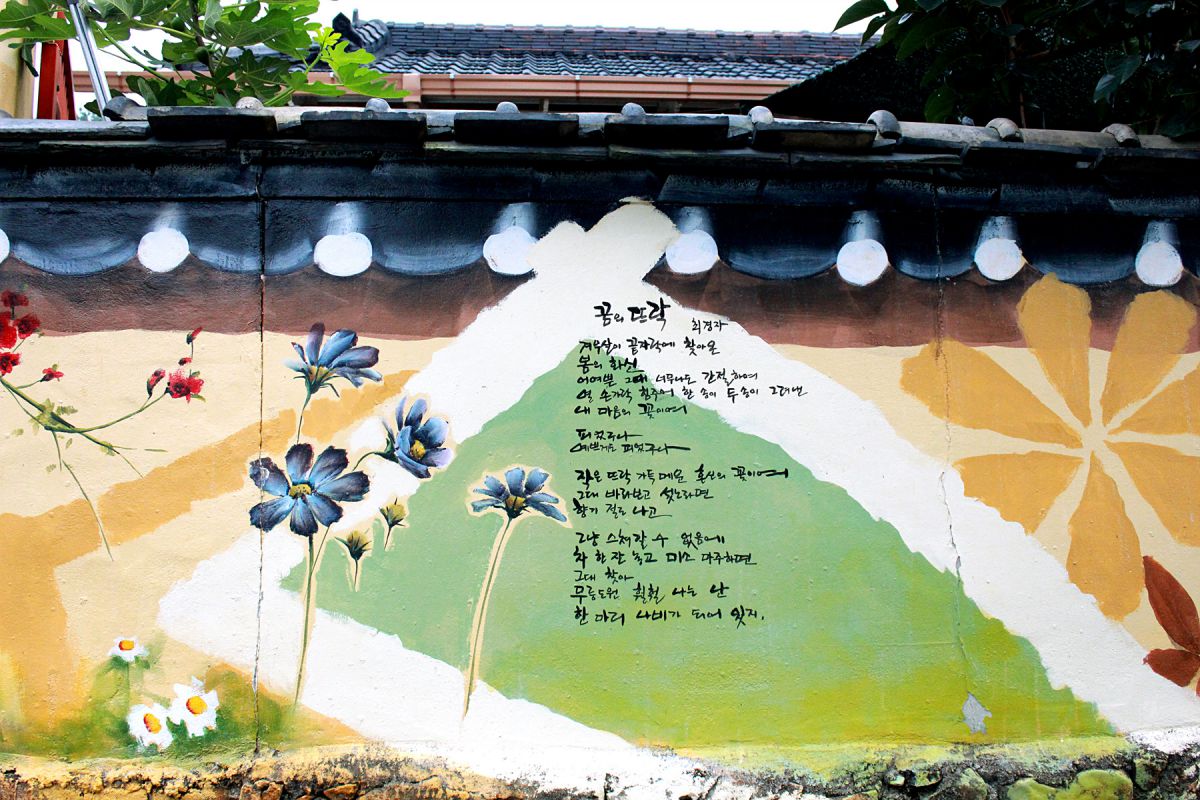 꿈의 뜨락
최경자
겨우살이 끝자락에 찾아온
봄의 화신
어여쁜 그대 너무나도 간절하여
열 손가락 힘주어 한 송이 두 송이 그려낸
내 마음의 꽃이여
피었구나
예쁘게도 피었구나
작은 뜨락 가득 메운 혼신의 꽃이여
그대 바라보고 섰노라면
향기 절로 나고
그냥 스쳐갈 수 없음에
차 한 잔 놓고 미소 마주하면
그대 찾아
무릉도원 훨훨 나는 난
한 마리 나비가 되어 있지.